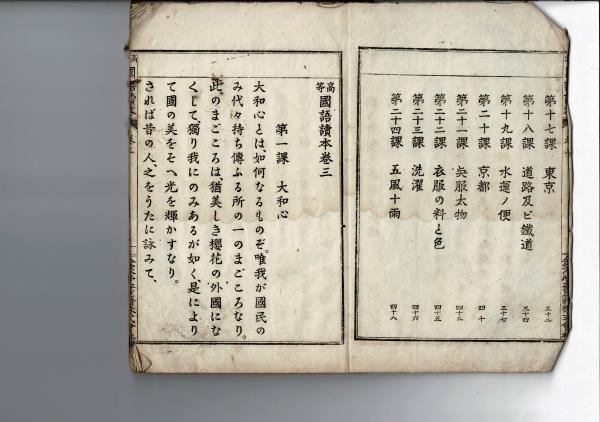 第十七課 東京 三十二
第十八課 道路及ビ鐵道 三十四
第十九課 水運ノ便 三十七
第二十課 京都 四十
第二十一課 呉服太物 四十三
第二十二課 衣服の料と色 四十五
第二十三課 洗濯 四十六
第二十四課 五風十雨 四十八
高等國語讀本卷三
第一課 大和心
大和心とは、如何なるものぞ。唯我が國民の
み代々持ち傳ふる所の一のまごころなり。
此のまごころは、猶美しき櫻花の外國にな
くして、獨り我にのみあるが如く、是により
て國の美をそへ光を輝かすなり。
されば昔の人、之をうたに詠みて、